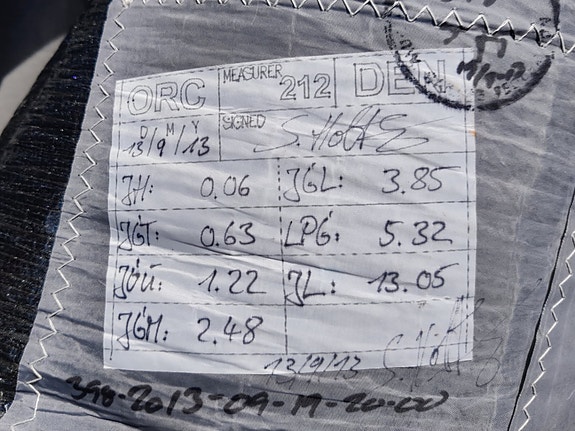 ORC MEASURER 212 DEN
D M Y
13/9/13 SIGNED
JH: 0.06 JGL: 3.85
JGT: 0.63 LPG: 5.32
JGU: 1.22 JL: 13.05
JGM: 2.48
13/9/13
398-2013-09-M-20-00